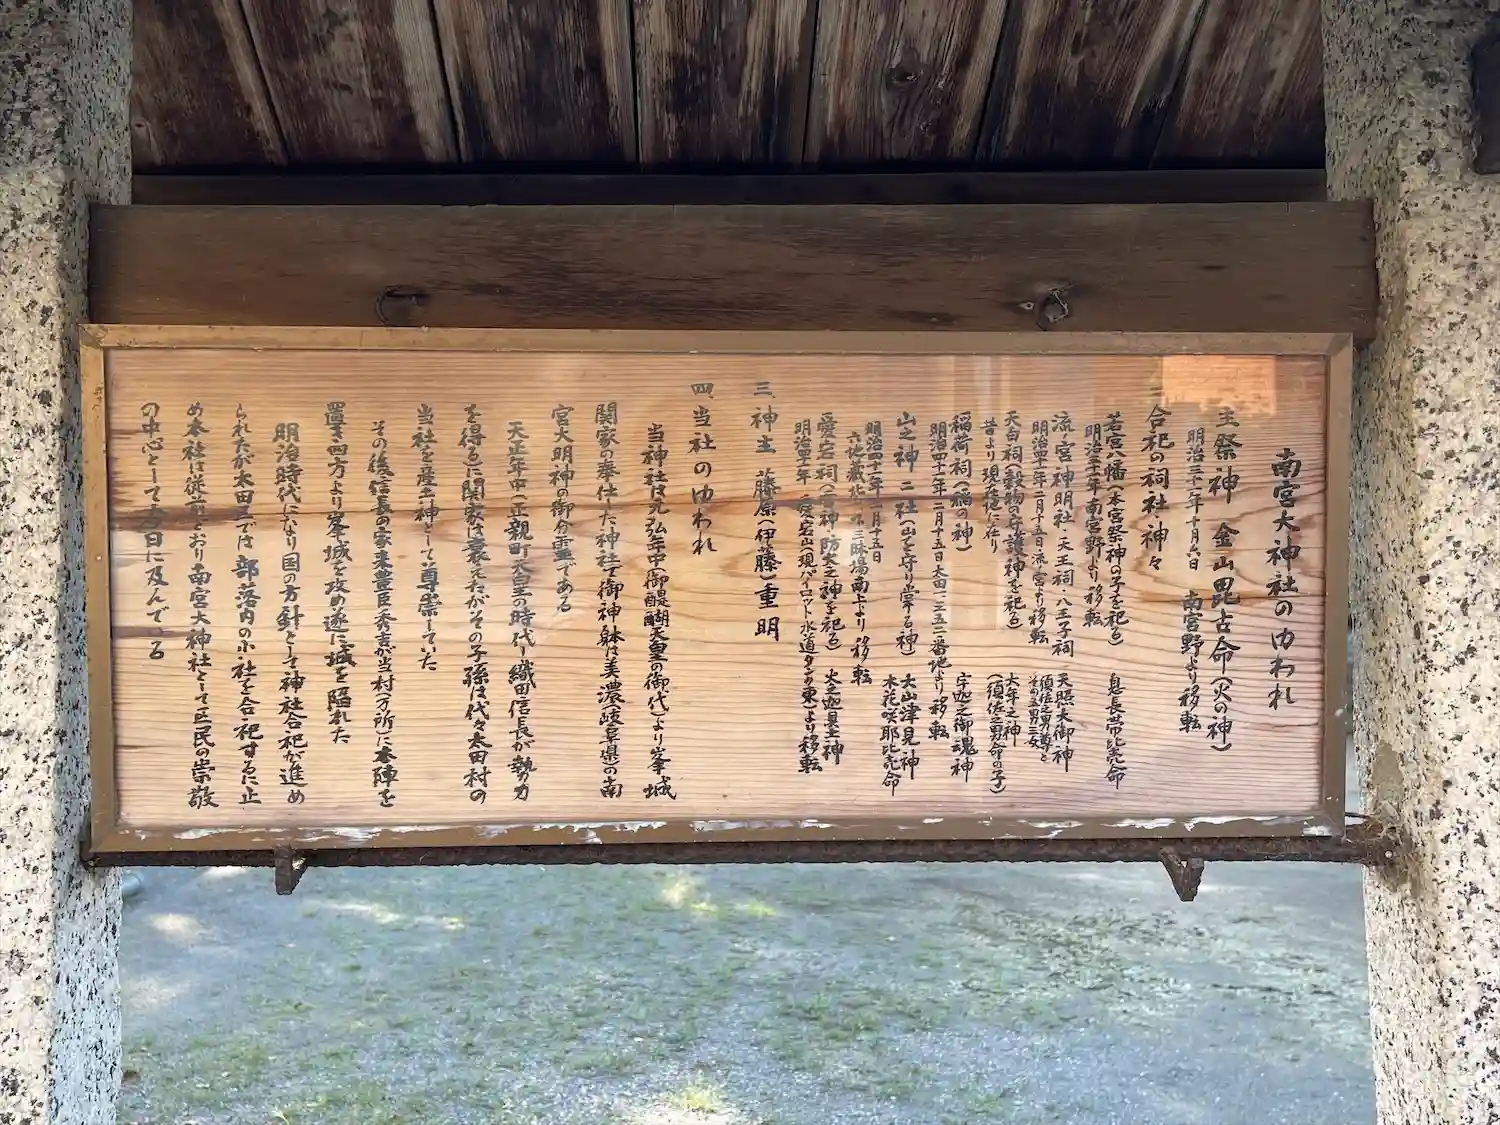 南宮大神社のゆわれ
主祭神 金山毘古命(火の神)
明治三十年十月六日 南宮野より移転
合祀の祠社・神々
若宮八幡(本宮祭神の子を祀る) 息長帯比売命
明治四十一年南宮野より移転
流・宮神明社・天王祠・八王子祠 天照大御神
須佐之男尊と
その五男三女
明治四十一年二月十五日流宮より移転
天白祠(穀物の守護神を祀る) 大年之神
(須佐之男命の子)
昔より現在地に在り
稲荷祠(稲の神) 宇迦之御魂神
明治四十一年二月十五日太田一三五二番地より移転
山之神二社(山を守り営平る神) 大山津見神
木花咲耶比売命
明治四十一年二月十五日
六地蔵北 三昧場南上より移転
愛宕祠(雷神防火之神を祀る) 火之迦具土神
明治四十一年 愛宕山(現パイロット水道タンク東)より移転
三、神主 藤原(伊藤)重明
四、当社のゆわれ
当神社は元弘年中(御醍醐天皇の御代)より峯城
関家の奉仕した神社で御神躰は美濃(岐阜県)の南
宮大明神の御分霊である
天正年中(正親町天皇の時代)織田信長が勢力
を得るに関家は衰えたがその子孫は代々太田村の
当社を産土神として尊崇していた
その後信長の家来豊臣秀吉が当村(万所)に本陣を
置き四方より峯城を攻め遂に城を陥れた
明治時代になり国の方針として神社合祀が進め
られたが太田では部落内の小社を合祀するに止
め本社は従前どおり南宮大神社として区民の崇敬
の中心として今日に及んでいる